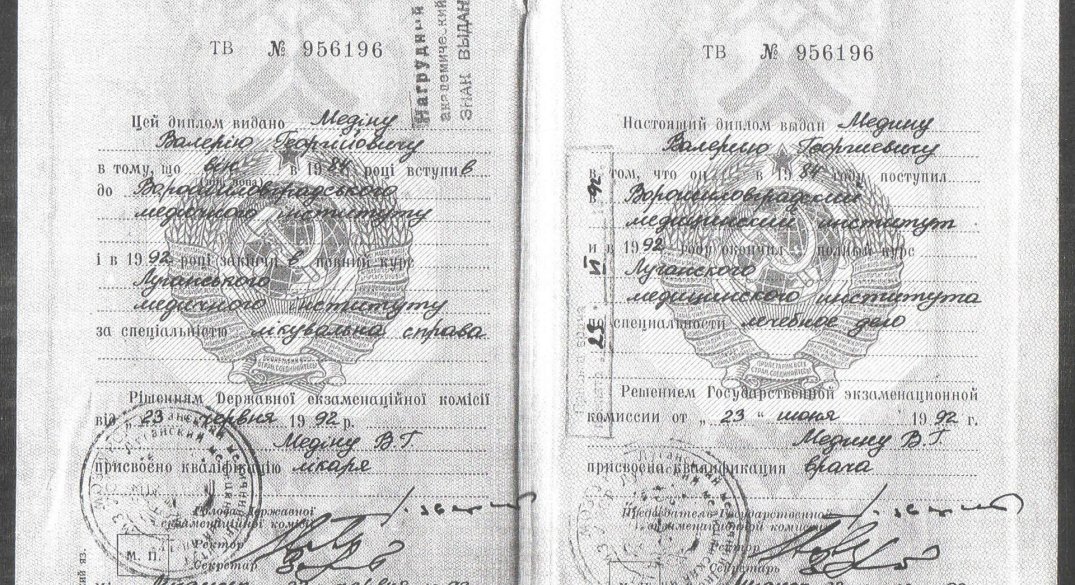 ТВ № 956196
Нагрудный
академический
ЗНАК ВЫДАН
Цей диплом видано Медіну
Валерію Георгійовичу
в тому, що він в 1984 році вступив
до Ворошиловградського
медичного інституту
і в 1992 році закінчив повний курс
Луганського
медичного інституту
за спеціальністю лікувальна справа
Рішенням Державної екзаменаційної комісії
від „ 23 " червня 1992 р.
Медіну В.Г.
присвоєно кваліфікацію лікаря
Голова Державної
екзаменаційної комісії
Ректор
Секретар
М. П.
ТВ № 956196
Настоящий диплом выдан Медину
Валерию Георгиевичу
в том, что он в 1984 году поступил
в Ворошиловградский
медицинский институт
и в 1992 году окончил полный курс
Луганского
медицинского института
по специальности лечебное дело
ПРОЛЕТАРИИ ВСЕХ
СТРАН, СОЕДИНЯЙТЕСЬ!
Решением Государственной экзаменационной
комиссии от „ 23 " июня 1992 г.
Медину В.Г.
присвоена квалификация врача
Председатель Государственной
экзаменационной комиссии
Ректор
Секретарь